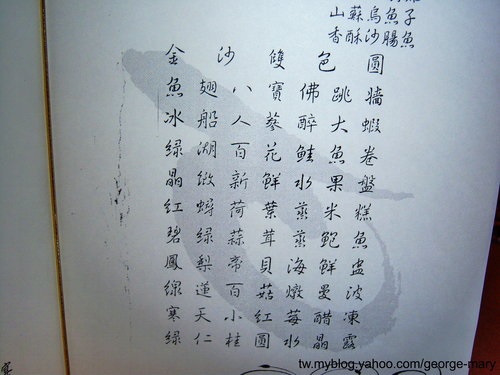 山蘇烏魚子
香酥沙腸魚
金沙雙色圓
魚翅八寶佛跳牆
冰船人蔘醉大蝦
綠湖百花鮭魚卷
晶緻新鮮水果盤
紅蟳荷葉蒸米糕
碧綠蒜茸蒸鮑魚
鳳梨帝貝海鮮盅
線蓮百菇燉曼波
寒天小紅莓醋凍
綠仁桂圓水晶露
tw.myblog.yahoo.com/george-mary